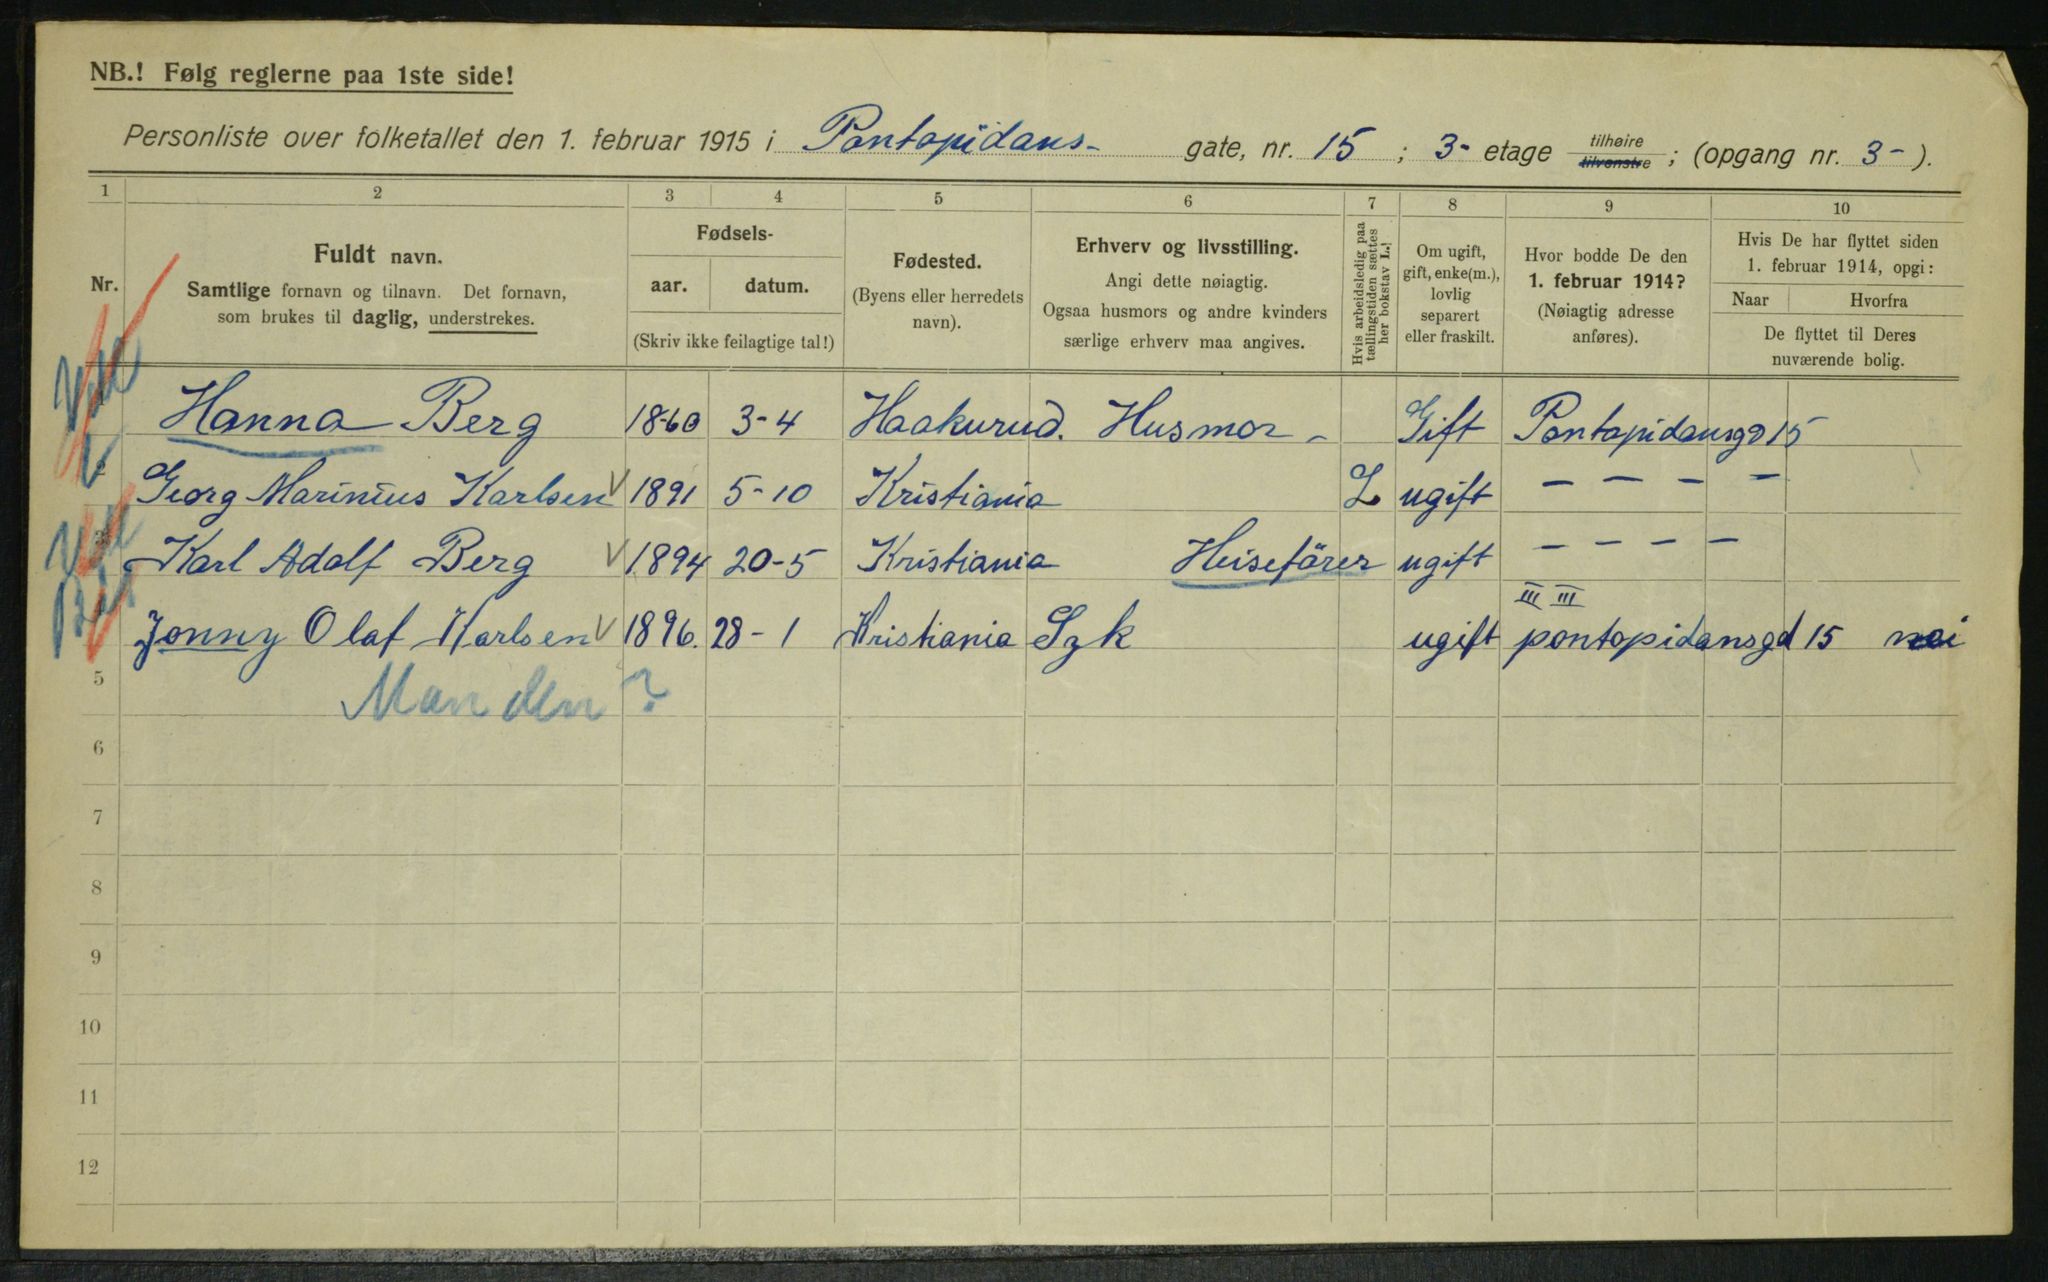 NB.! Følg reglerne paa 1ste side!
Personliste over folketallet den 1. februar 1915 i Pontopidans- gate, nr. 15 ; 3- etage tilhøire tilvenstre ; (opgang nr. 3- ).
1 2 3 4 5 6 7 8 9 10
Nr.
Fuldt navn.
Samtlige fornavn og tilnavn. Det fornavn,
som brukes til daglig, understrekes.
Fødsels-
aar. datum.
(Skriv ikke feilagtige tal!)
Fødested.
(Byens eller herredets
navn).
Erhverv og livsstilling.
Angi dette nøiagtig.
Ogsaa husmors og andre kvinders
særlige erhverv maa angives.
Hvis arbeidsledig paa
tællingstiden sættes
her bokstav L.!
Om ugift,
gift, enke(m.),
lovlig
separert
eller fraskilt.
Hvor bodde De den
1. februar 1914?
(Nøiagtig adresse
anføres).
Hvis De har flyttet siden
1. februar 1914, opgi:
Naar Hvorfra
De flyttet til Deres
nuværende bolig.
Hanna Berg 1860 3-4 Haakurud. Husmor - Gift Pontopidansgd 15
2 Georg Marinius Karlsen V 1891 5-10 Kristiania L ugift - - - -
3 Karl Adolf Berg V 1894 20-5 Kristiania Heiseförer ugift - - - -
III III
Jonny Olaf Karlsen V 1896. 28-1 Kristiania Syk ugift pontopidansgd 15 nei
5 Manden?
6
7
8
9
10
11
12